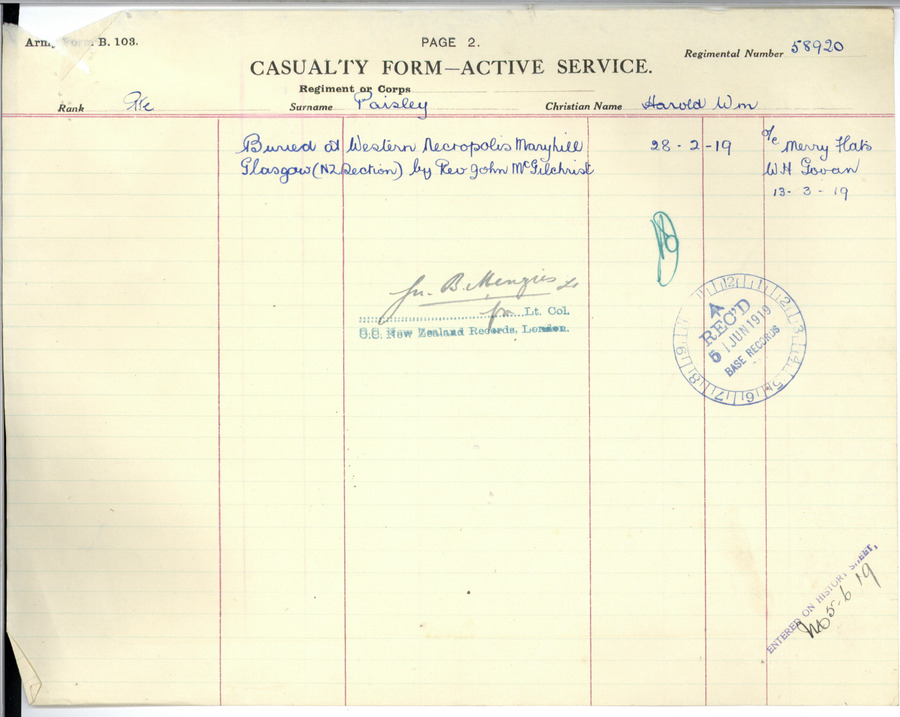 Army Form B. 103.
PAGE 2.
Regimental Number 58920
CASUALTY FORM—ACTIVE SERVICE.
Regiment or Corps
Rank Pte Surname Paisley Christian Name Harold Wm
Buried at Western Necropolis Maryhill 28 - 2 - 19 o/c Merry Flats
Glasgow (NZ Section) by Rev John McGilchrist WH Govan
13 - 3 - 19
Jn. B. Menzies Lt
for Lt. Col.
O.C. New Zealand Records, London.
A
REC'D
5 JUN 1919
BASE RECORDS
12 1 2 3 4 5 6 7 8 9
ENTERED ON HISTORY SHEET,
5-6 19